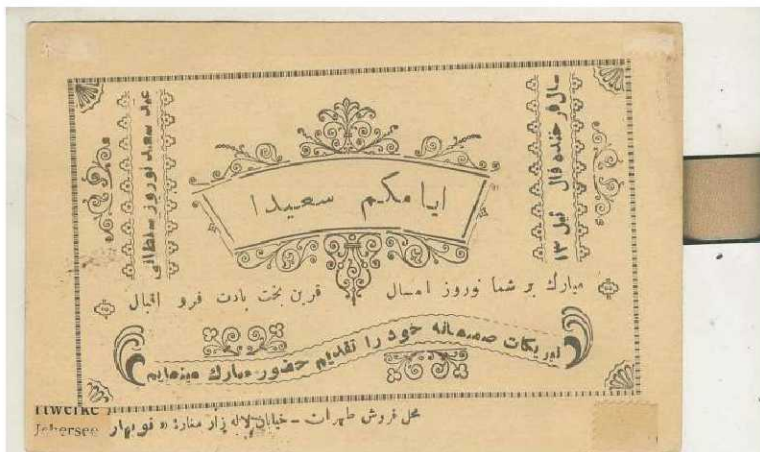 سال فرخنده فال ئیل ۱۳
عید سعید نوروز سلطانی
ایامکم سعیدا
مبارك بر شما نوروز امسال قرین بخت بادت فرو اقبال
تبریکات صمیمانه خود را تقدیم حضور مبارك مینمایم
محل فروش طهران - خیابان لاله زار مغازۀ « نوبهار